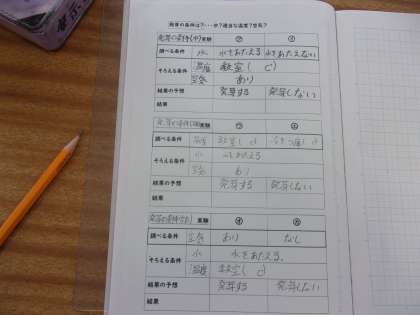 発芽の条件は?…水?適当な温度?空気?
発芽の条件(水)実験 ㋐ ㋑
調べる条件 水 水をあたえる 水をあたえない
そろえる条件 温度 教室( ℃)
空気 あり
結果の予想 発芽する 発芽しない
結果
発芽の条件 実験 ㋒ ㋓
調べる条件 温度 教室( ℃
そろえる条件 水 水をあたえる
空気 あり
結果の予想 発芽する 発芽しない
結果
発芽の条件 実験 ㋔ ㋕
調べる条件 空気 あり なし
そろえる条件 水 水をあたえる。
温度 教室( ℃)
結果の予想 発芽する 発芽しない
結果